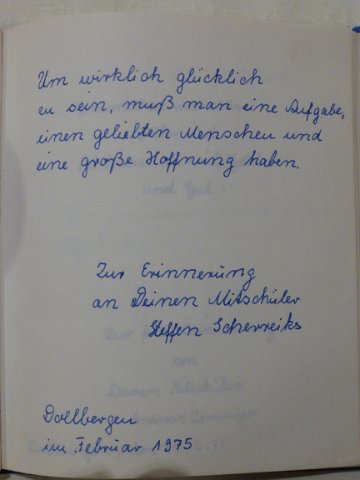 Um wirklich glücklich
zu sein, muß man eine Aufgabe,
einen geliebten Menschen und
eine große Hoffnung haben.
Zur Erinnerung
an Deinen Mitschüler
Steffen Scherreiks
Dollbergen
im Februar 1975